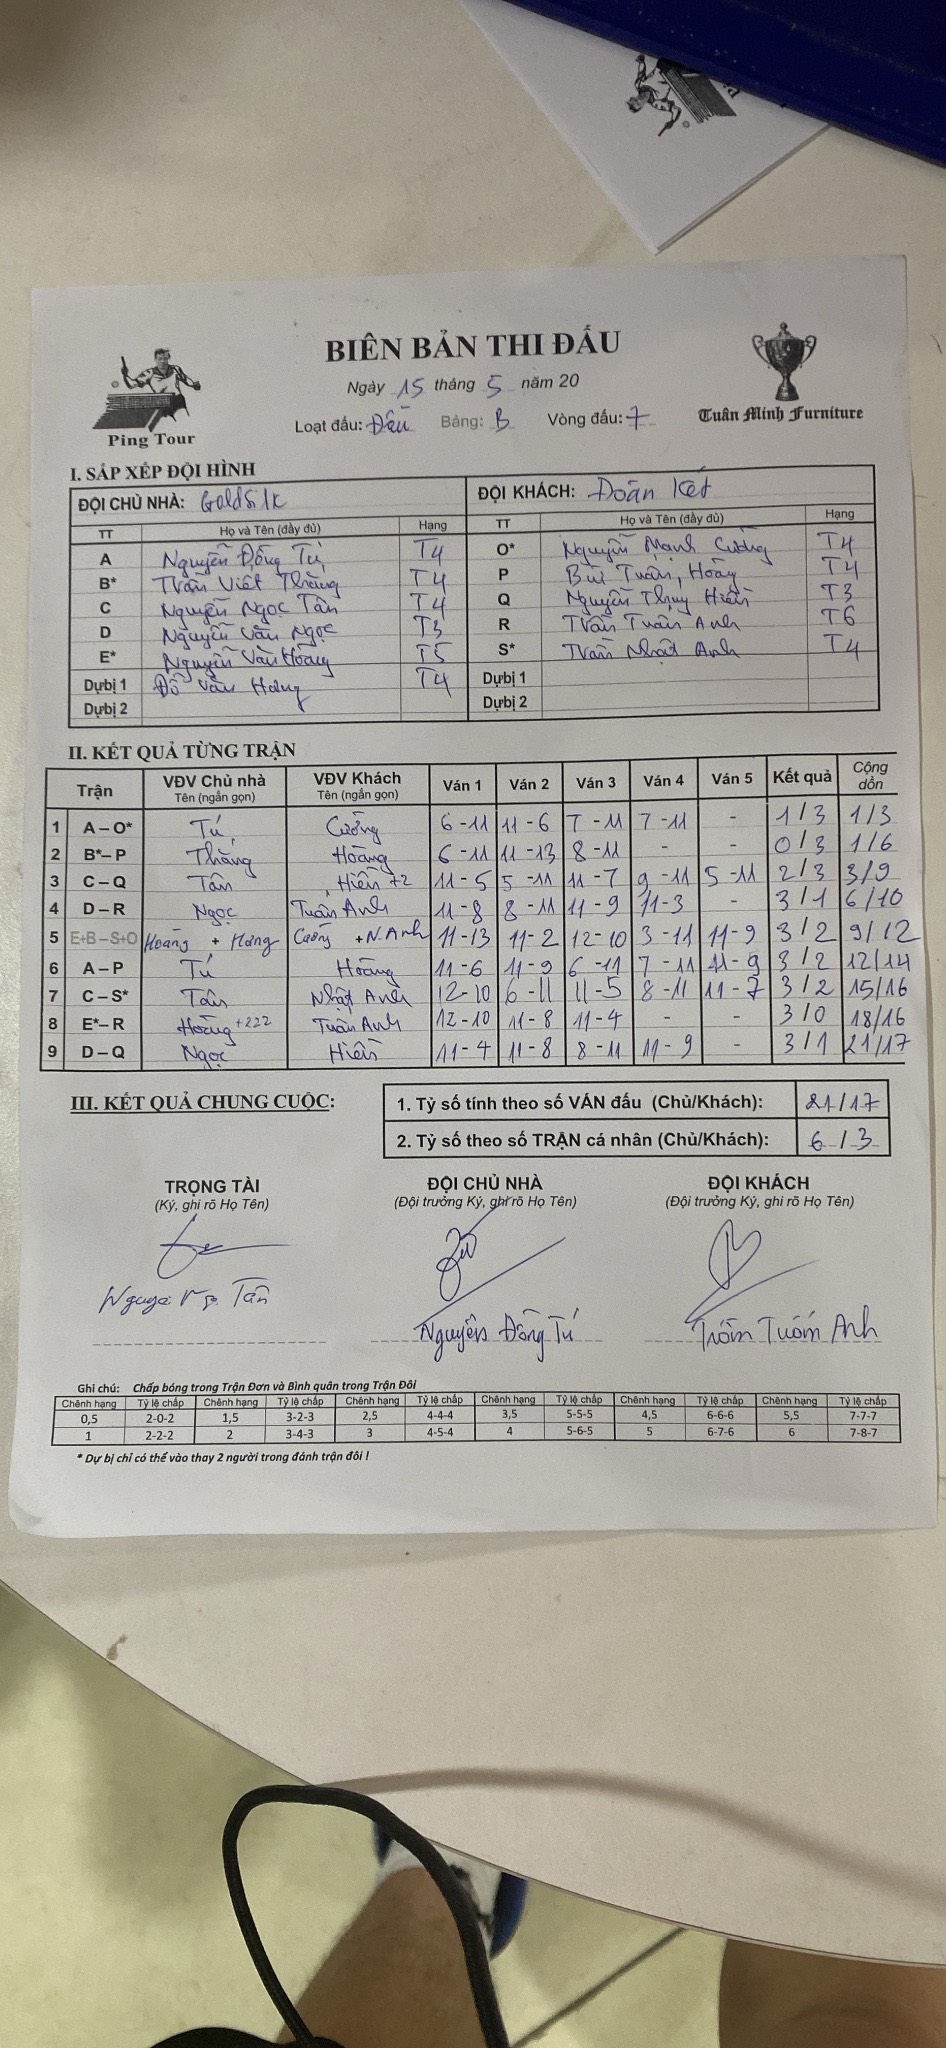 BIÊN BẢN THI ĐẤU
Ngày 15 tháng 5 năm 20
Loạt đấu: Đấu Bảng: B Vòng đấu: 7
Ping Tour
Tuấn Minh Furniture
I. SẮP XẾP ĐỘI HÌNH
ĐỘI CHỦ NHÀ: GoldSilk ĐỘI KHÁCH: Đoàn Kết
TT Họ và Tên (đầy đủ) Hạng TT Họ và Tên (đầy đủ) Hạng
A Nguyễn Đồng Tú T4 O* Nguyễn Mạnh Cường T4
B* Trần Viết Thắng T4 P Bùi Tuấn Hoàng T4
C Nguyễn Ngọc Tân T4 Q Nguyễn Thụy Hiền T3
D Nguyễn Văn Ngọc T3 R Trần Tuấn Anh T6
E* Nguyễn Văn Hoàng T5 S* Trần Nhật Anh T4
Dự bị 1 Đỗ Văn Hưng T4 Dự bị 1
Dự bị 2 Dự bị 2
II. KẾT QUẢ TỪNG TRẬN
Trận VĐV Chủ nhà Tên (ngắn gọn) VĐV Khách Tên (ngắn gọn) Ván 1 Ván 2 Ván 3 Ván 4 Ván 5 Kết quả Cộng dồn
1 A – O* Tú Cường 6 - 11 11 - 6 7 - 11 7 - 11 - 1 / 3 1 / 3
2 B* – P Thắng Hoàng 6 - 11 11 - 13 8 - 11 - - 0 / 3 1 / 6
3 C – Q Tân Hiền +2 11 - 5 5 - 11 11 - 7 9 - 11 5 - 11 2 / 3 3 / 9
4 D – R Ngọc Tuấn Anh 11 - 8 8 - 11 11 - 9 11 - 3 - 3 / 1 6 / 10
5 E+B – S+O Hoàng + Hưng Cường + N.Anh 11 - 13 11 - 2 12 - 10 3 - 11 11 - 9 3 / 2 9 / 12
6 A – P Tú Hoàng 11 - 6 11 - 9 6 - 11 7 - 11 11 - 9 3 / 2 12 / 14
7 C – S* Tân Nhật Anh 12 - 10 6 - 11 11 - 5 8 - 11 11 - 7 3 / 2 15 / 16
8 E* – R Hoàng +222 Tuấn Anh 12 - 10 11 - 8 11 - 4 - - 3 / 0 18 / 16
9 D – Q Ngọc Hiền 11 - 4 11 - 8 8 - 11 11 - 9 - 3 / 1 21 / 17
III. KẾT QUẢ CHUNG CUỘC:
1. Tỷ số tính theo số VÁN đấu (Chủ/Khách): 21 / 17
2. Tỷ số theo số TRẬN cá nhân (Chủ/Khách): 6 / 3
TRỌNG TÀI ĐỘI CHỦ NHÀ ĐỘI KHÁCH
(Ký, ghi rõ Họ Tên) (Đội trưởng Ký, ghi rõ Họ Tên) (Đội trưởng Ký, ghi rõ Họ Tên)
Tân
Nguyễn Đồng Tú Trần Tuấn Anh
Ghi chú: Chấp bóng trong Trận Đơn và Bình quân trong Trận Đôi
Chênh hạng Tỷ lệ chấp Chênh hạng Tỷ lệ chấp Chênh hạng Tỷ lệ chấp Chênh hạng Tỷ lệ chấp Chênh hạng Tỷ lệ chấp Chênh hạng Tỷ lệ chấp
0,5 2-0-2 1,5 3-2-3 2,5 4-4-4 3,5 5-5-5 4,5 6-6-6 5,5 7-7-7
1 2-2-2 2 3-4-3 3 4-5-4 4 5-6-5 5 6-7-6 6 7-8-7
* Dự bị chỉ có thể vào thay 2 người trong đánh trận đôi !